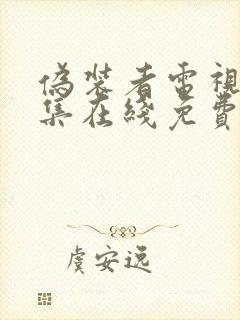 偽裝者電視
集在綫免費
虞安远